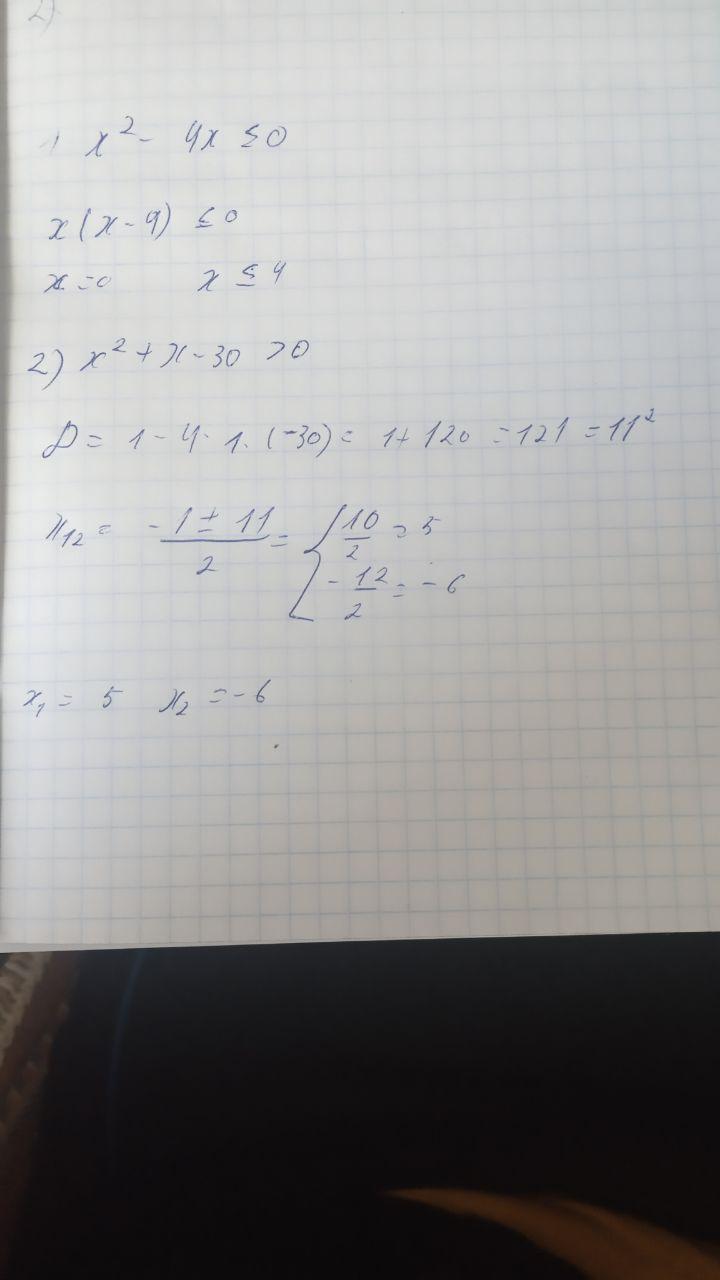 2)
1) x² - 4x ≤ 0
x(x - 4) ≤ 0
x = 0 x ≤ 4
2) x² + x - 30 > 0
D = 1 - 4 · 1 · (-30) = 1 + 120 = 121 = 11²
x₁₂ = (-1 ± 11)/2 = { 10/2 = 5
-12/2 = -6
x₁ = 5 x₂ = -6